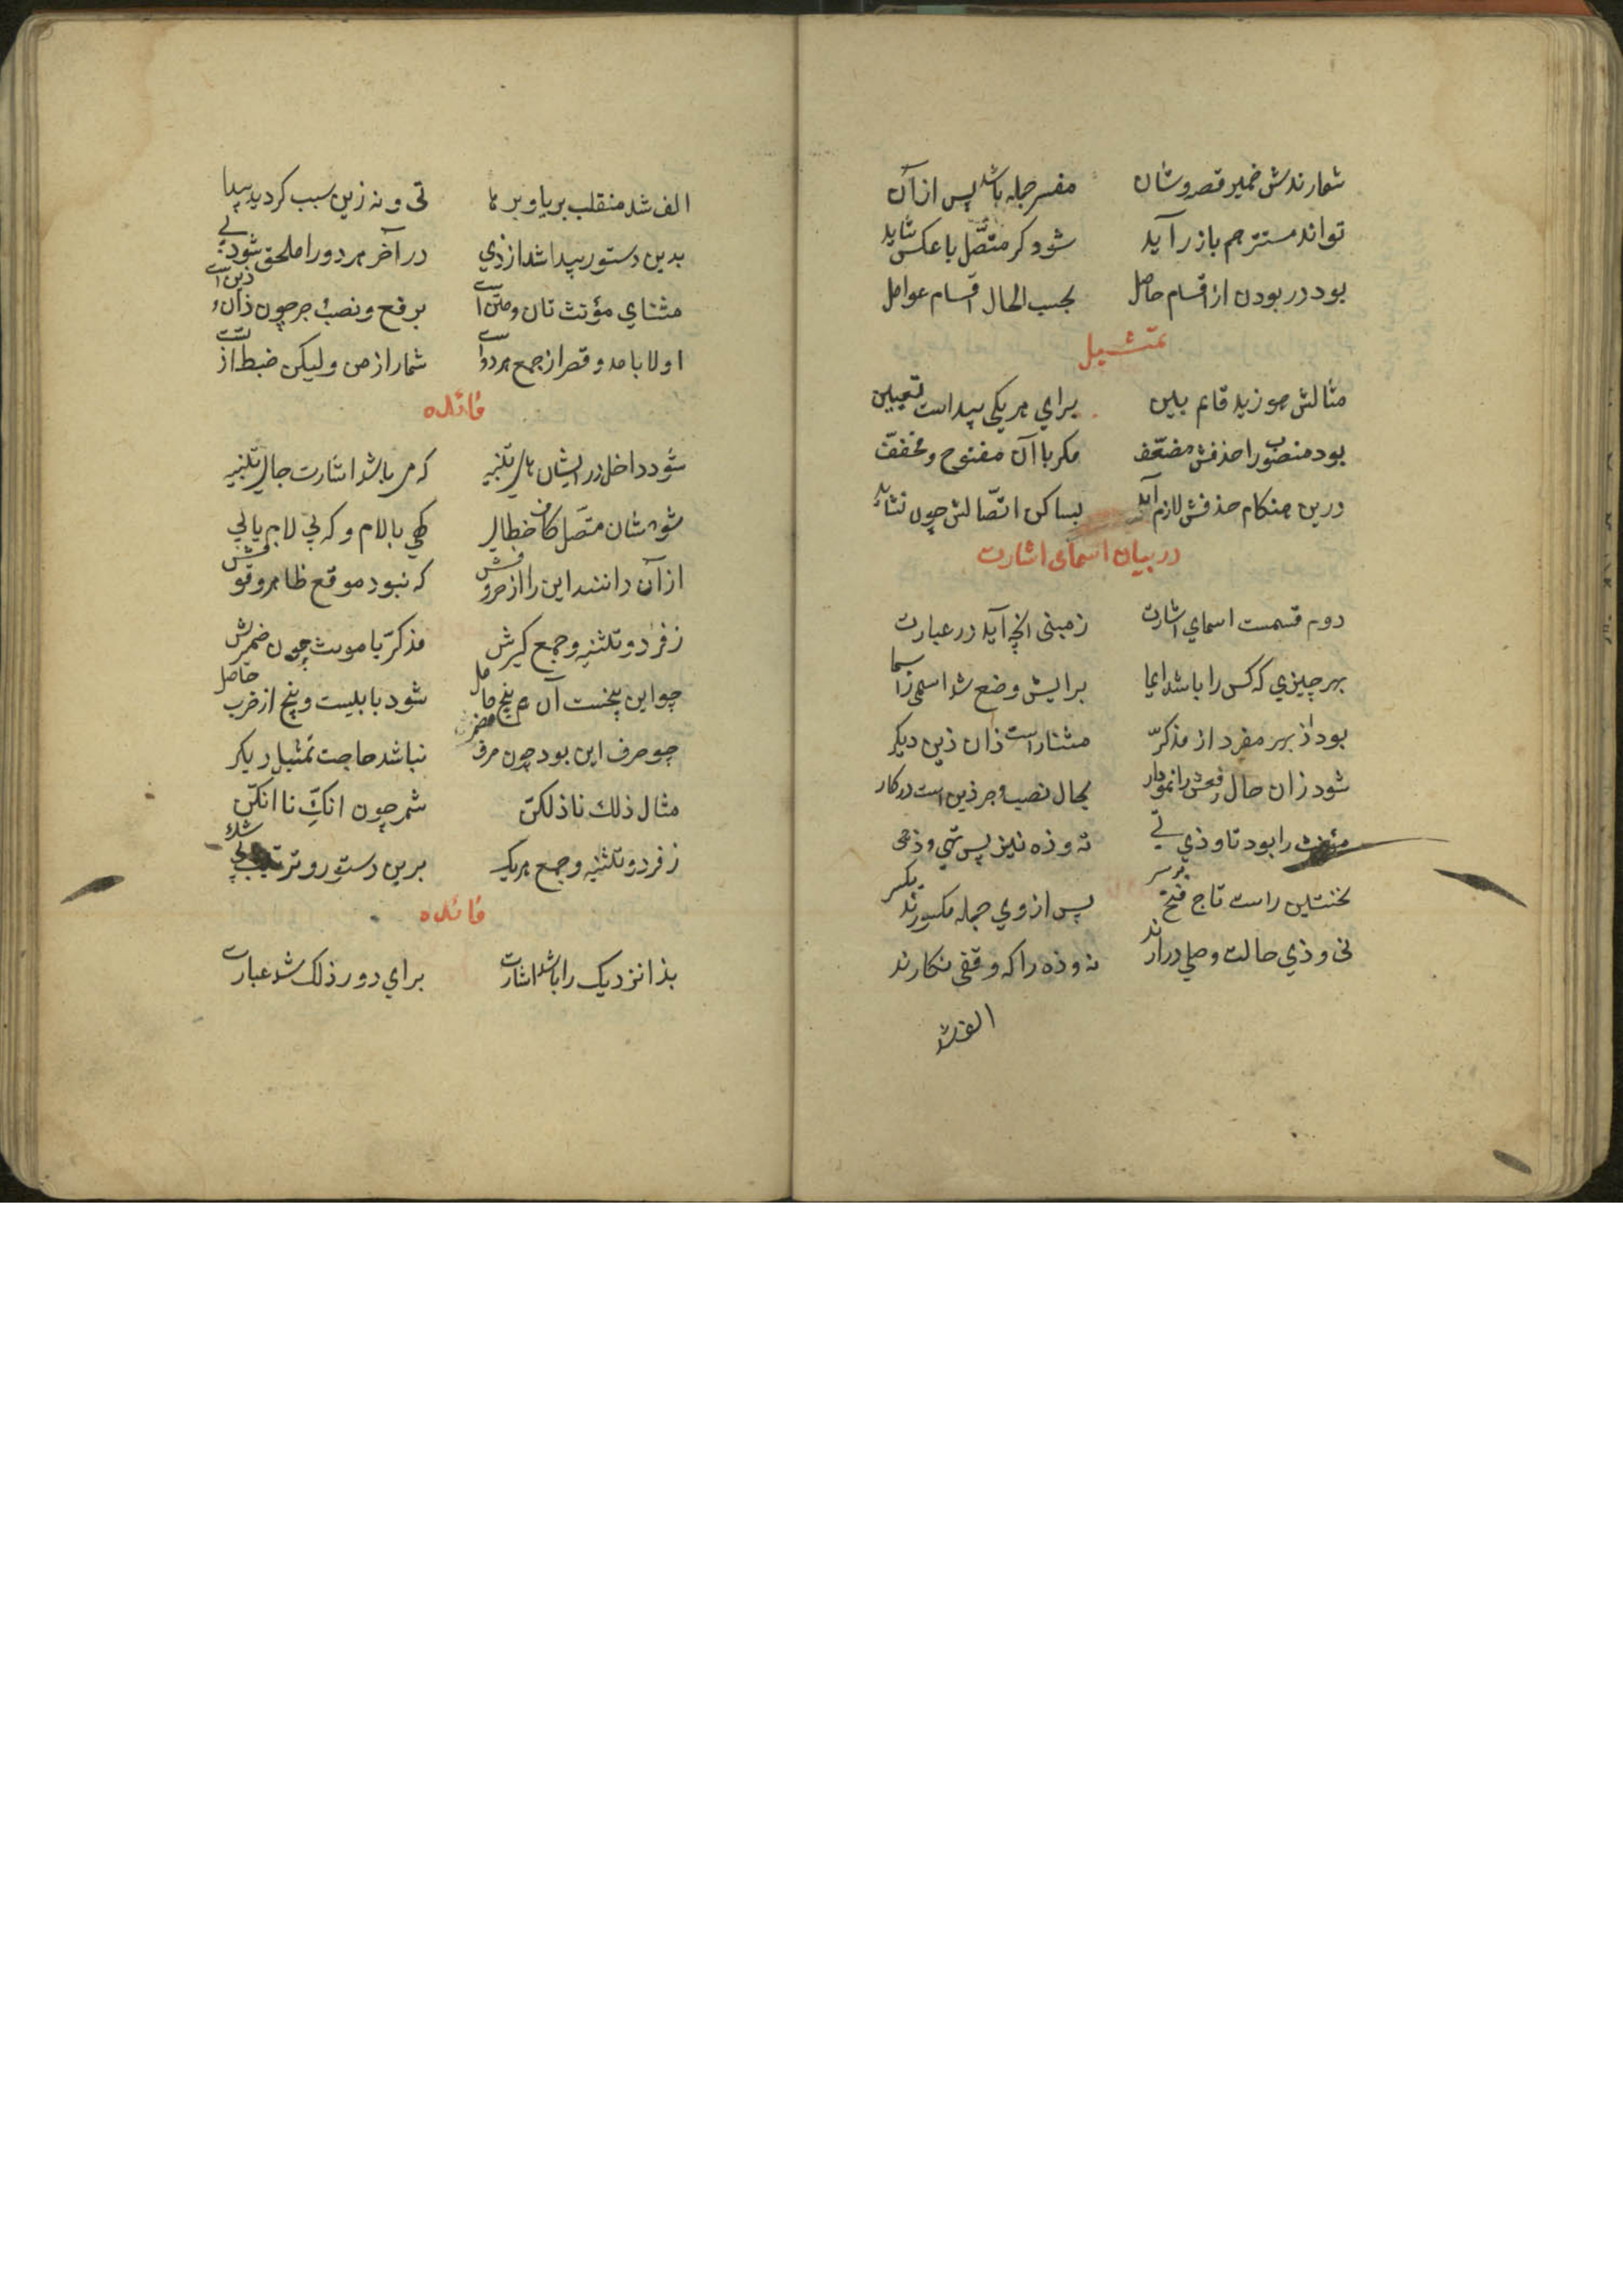 شمارندش ضمیر قصه و شان مفسر جمله باشد پس از آن
تواند مستتر هم بازر آید شود کر متّصل با عکس شاید
بود در بودن از اقسام حاصل بحسب الحال اقسام عوامل
تمثیل
مثالش هو زید قایم ببین برای هر یکی پیداست تعیین
بود منصوب را حذفش مضعّف مکر با آن مفتوح و مخفّف
درین هنکام حذفش لازم آید بساکن اتّصالش چون نشاید
در بیان اسمای اشارت
دوم قسمست اسمای اشارت زمبنی انچه آید در عبارت
بهر چیزی که کس را باشد ایما برایش وضع شد اسمی ز اسما
بود ذا بهر مفرد از مذکرّ مثنا راست ذان ذین دیکر
شود زان حال رفعش را نمودار بحال نصب و جر ذین است درکار
مؤنث را بود تا و ذی تی ته و ذه نیز پس تهی و ذهی
نخستین راست تاج فتح بر سر پس از وی جمله مکسورند یکسر
تی و ذی حالت وصلی درآرند ته و ذه را که وقفی نکارند
الف شد
الف شد منقلب بر یا و بر ها تی و ته زین سبب کردید پیدا
بدین دستور پیدا شد از ذی در آخر هر دو را ملحق شود یی
مثنای مؤنث تان و تین است برفع و نصب جر چون ذان و ذین است
اولا با مد و قصر از جمع هر دو است شمار از من ولیکن ضبط از تست
فائده
شود داخل در ایشان های تنبیه که می باشد اشارت جای تنبیه
شود شان متّصل کاف خطابی کهی با لام و که بی لام یابی
از آن دانند این را از حروفش که نبود موقع ظاهر وقوفش
ز فرد و تثنیه و جمع کیرش مذکرّ یا مونث چون ضمیرش
چو این پنجست آن هم پنج حاصل شود با بیست و پنج از ضرب حاصل
چو حرف این بود چون مضمر نباشد حاجت تمثیل دیکر
مثال ذلك نا ذلکنّ شمر چون انكِّ نا انکنّ
ز فرد و تثنیه و جمع هر یک برین دستور و ترتیب
فائده
بذا نزدیک را باشد اشارت برای دور ذلک شد عبارت